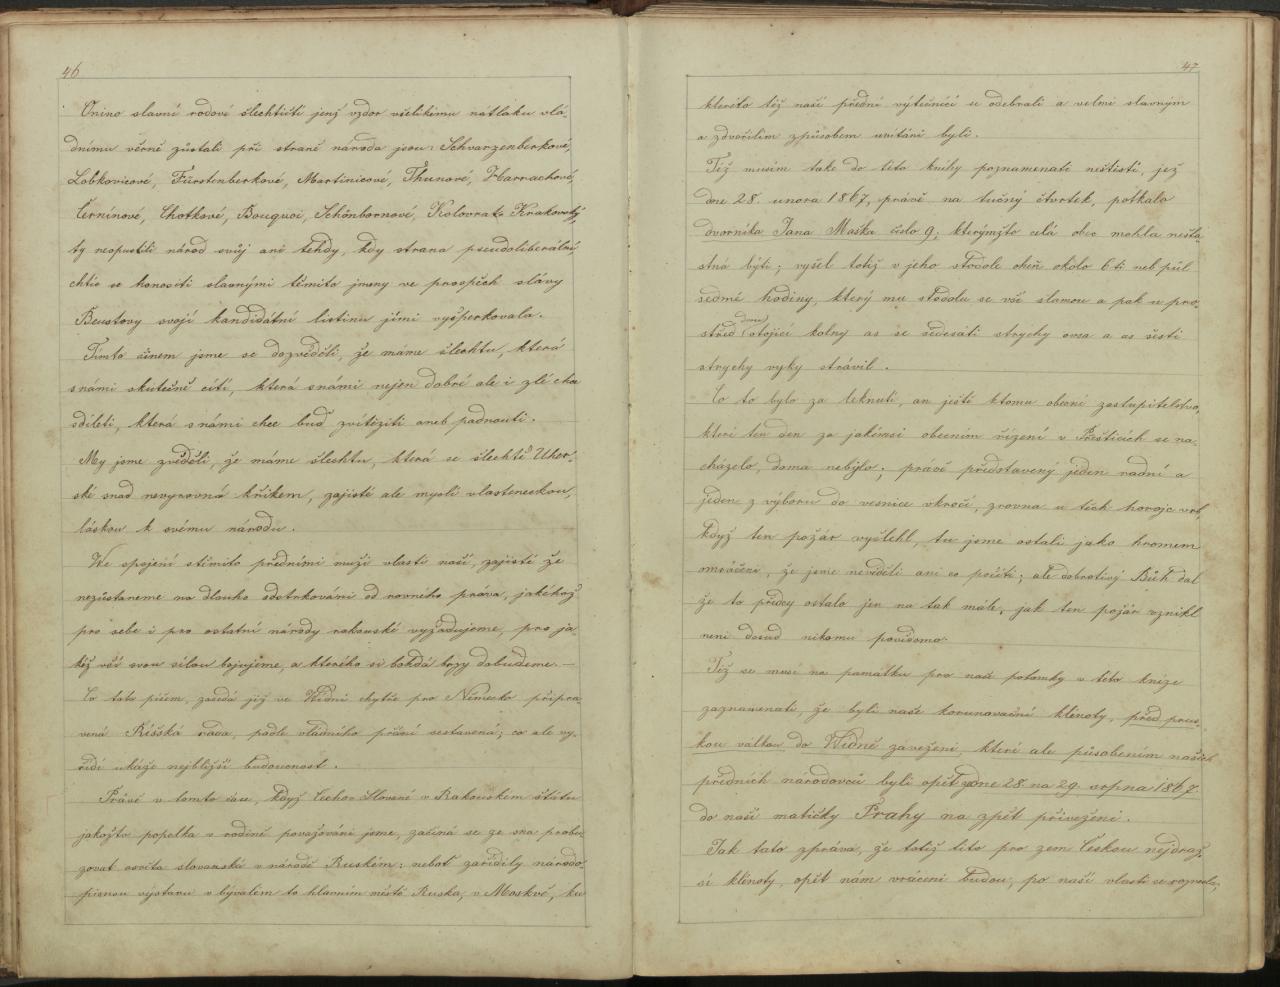 46
Onino slavní rodové šlechtičtí jenž vzdor všelikému nátlaku vlá-
dnímu věrně zůstali při straně národa jsou: Schwarzenberkové,
Lobkovicové, Fürstenberkové, Martinicové, Thunové, Harrachové,
Černínové, Chotkové, Bouquoi, Schönbornové, Kolovrat-Krakovský,
ty neopustili národ svůj ani tehdy, kdy strana pseudoliberální,
chtíc se honositi slavnými těmito jmeny ve prospěch slávy
Beustovy svojí kandidátní listinu jimi vyšperkovala.
Tímto činem jsme se dozvěděli, že máme šlechtu, která
s námi skutečně cítí, která s námi nejen dobré ale i zlé chce
sdíleti, která s námi chce buď zvítěziti aneb padnouti.
My jsme zvěděli, že máme šlechtu, která se šlechtě Uher-
ské snad nevyrovná křikem, zajisté ale myslí vlasteneckou,
láskou k svému národu.
We spojení s těmito předními muži vlasti naší, zajisté že
nezůstaneme na dlouho odstrkováni od rovného práva, jakéhož
pro sebe i pro ostatní národy rakouské vyžadujeme, pro ja-
kéž vší svou silou bojujeme, a kterého si bohdá brzy dobudeme. —
Co toto píšem, zasedá již ve Wídni chytře pro Německo připra-
vená Říšská rada, podle vládního přání sestavená; co ale vy-
řídí ukáže nejbližší budoucnost.
Právě v tomto čase, když Čecho-Slované v Rakouském štátu
jakožto popelka v rodině považováni jsme, začíná se ze sna probu-
zovat osvěta slovanská v národě Ruském: neboť zařídily národo-
pisnou výstavu v bývalém to hlavním městě Ruska, v Moskvě, ku
47
kteréto též naší přední výtečníci se odebrali a velmi slavným
a zdvořilím způsobem uvítáni byli.
Též musím take do této knihy poznamenati neštěstí, jež
dne 28. unora 1867, právě na tučný čtvrtek, potkalo
dvorníka Jana Maška číslo 9, kterýmžto celá obec mohla nešťa-
stná býti; vyšel totiž v jeho stodole oheň okolo 6ti neb půl
sedmé hodiny, který mu stodolu se vší slamou a pak u pro-
střed dvou stojící kolny as se šedesáti strychy ovsa a as šesti
strychy vyky strávil.
Co to bylo za leknutí, an ještě ktomu obecní zastupitelstvo,
které ten den za jakémsi obecním řízení v Přešticích se na-
cházelo, doma nebylo; pravě představený jeden radní a
jeden z výboru do vesnice vkročí, zrovna u těch horejc vrb,
když ten požár vyšlehl, tu jsme ostali jako hromem
omráčeni, že jsme nevěděli ani co počíti; ale dobrotivý Bůh dal
že to předcy ostalo jen na tak mále; jak ten požár vznikl
neni dosud nikomu povědomo.
Též se musí na památku pro naše potomky v této knize
zaznamenati, že byli naše korunovační klénoty, před prus-
kou válkou do Wídně zavezeni, které ale působením našich
předních národovců byli opět dne 28 na 29. srpna 1867.
do naší matičky Prahy na zpět přivezeni.
Tak tato zpráva, že totiž tito pro zem Českou nejdraž-
ší klénoty, opět nám vráceni budou, po naší vlasti se roznesla,